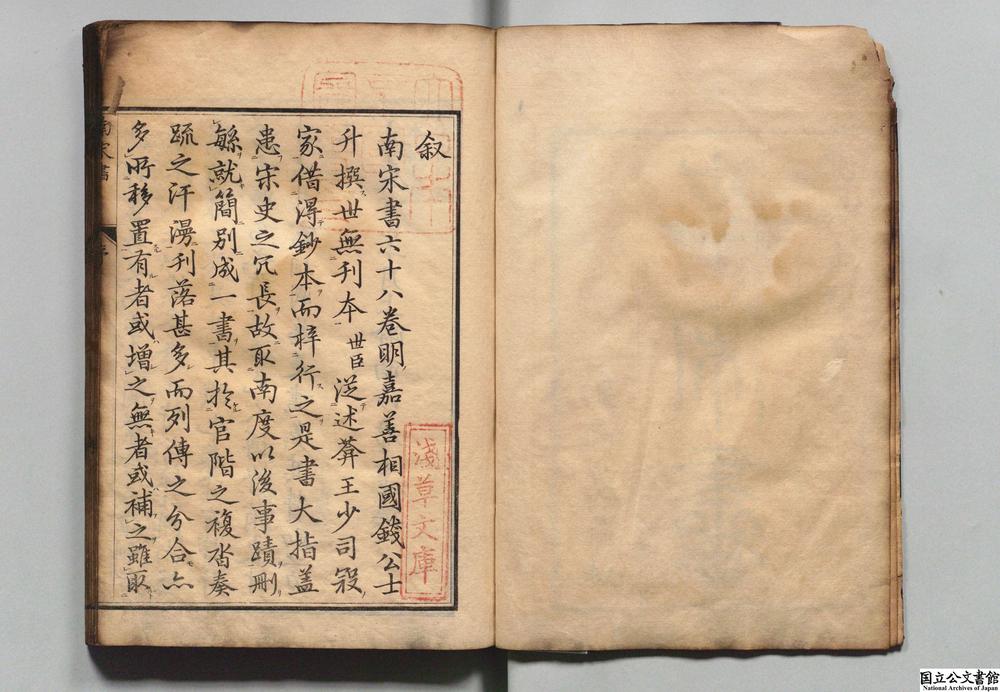 叙
南宋書六十八卷明嘉善相國錢公士
升撰世無刊本世臣從述葊王少司寇
家借得鈔本而梓行之是書大指蓋
患宋史之冗長故取南度以後事蹟刪
緐就簡別成一書其於官階之複沓奏
疏之汗漫刊落甚多而列傳之分合亦
多所移置有者或增之無者或補之雖取
南宋書
序
淺草文庫
国立公文書館
National Archives of Japan